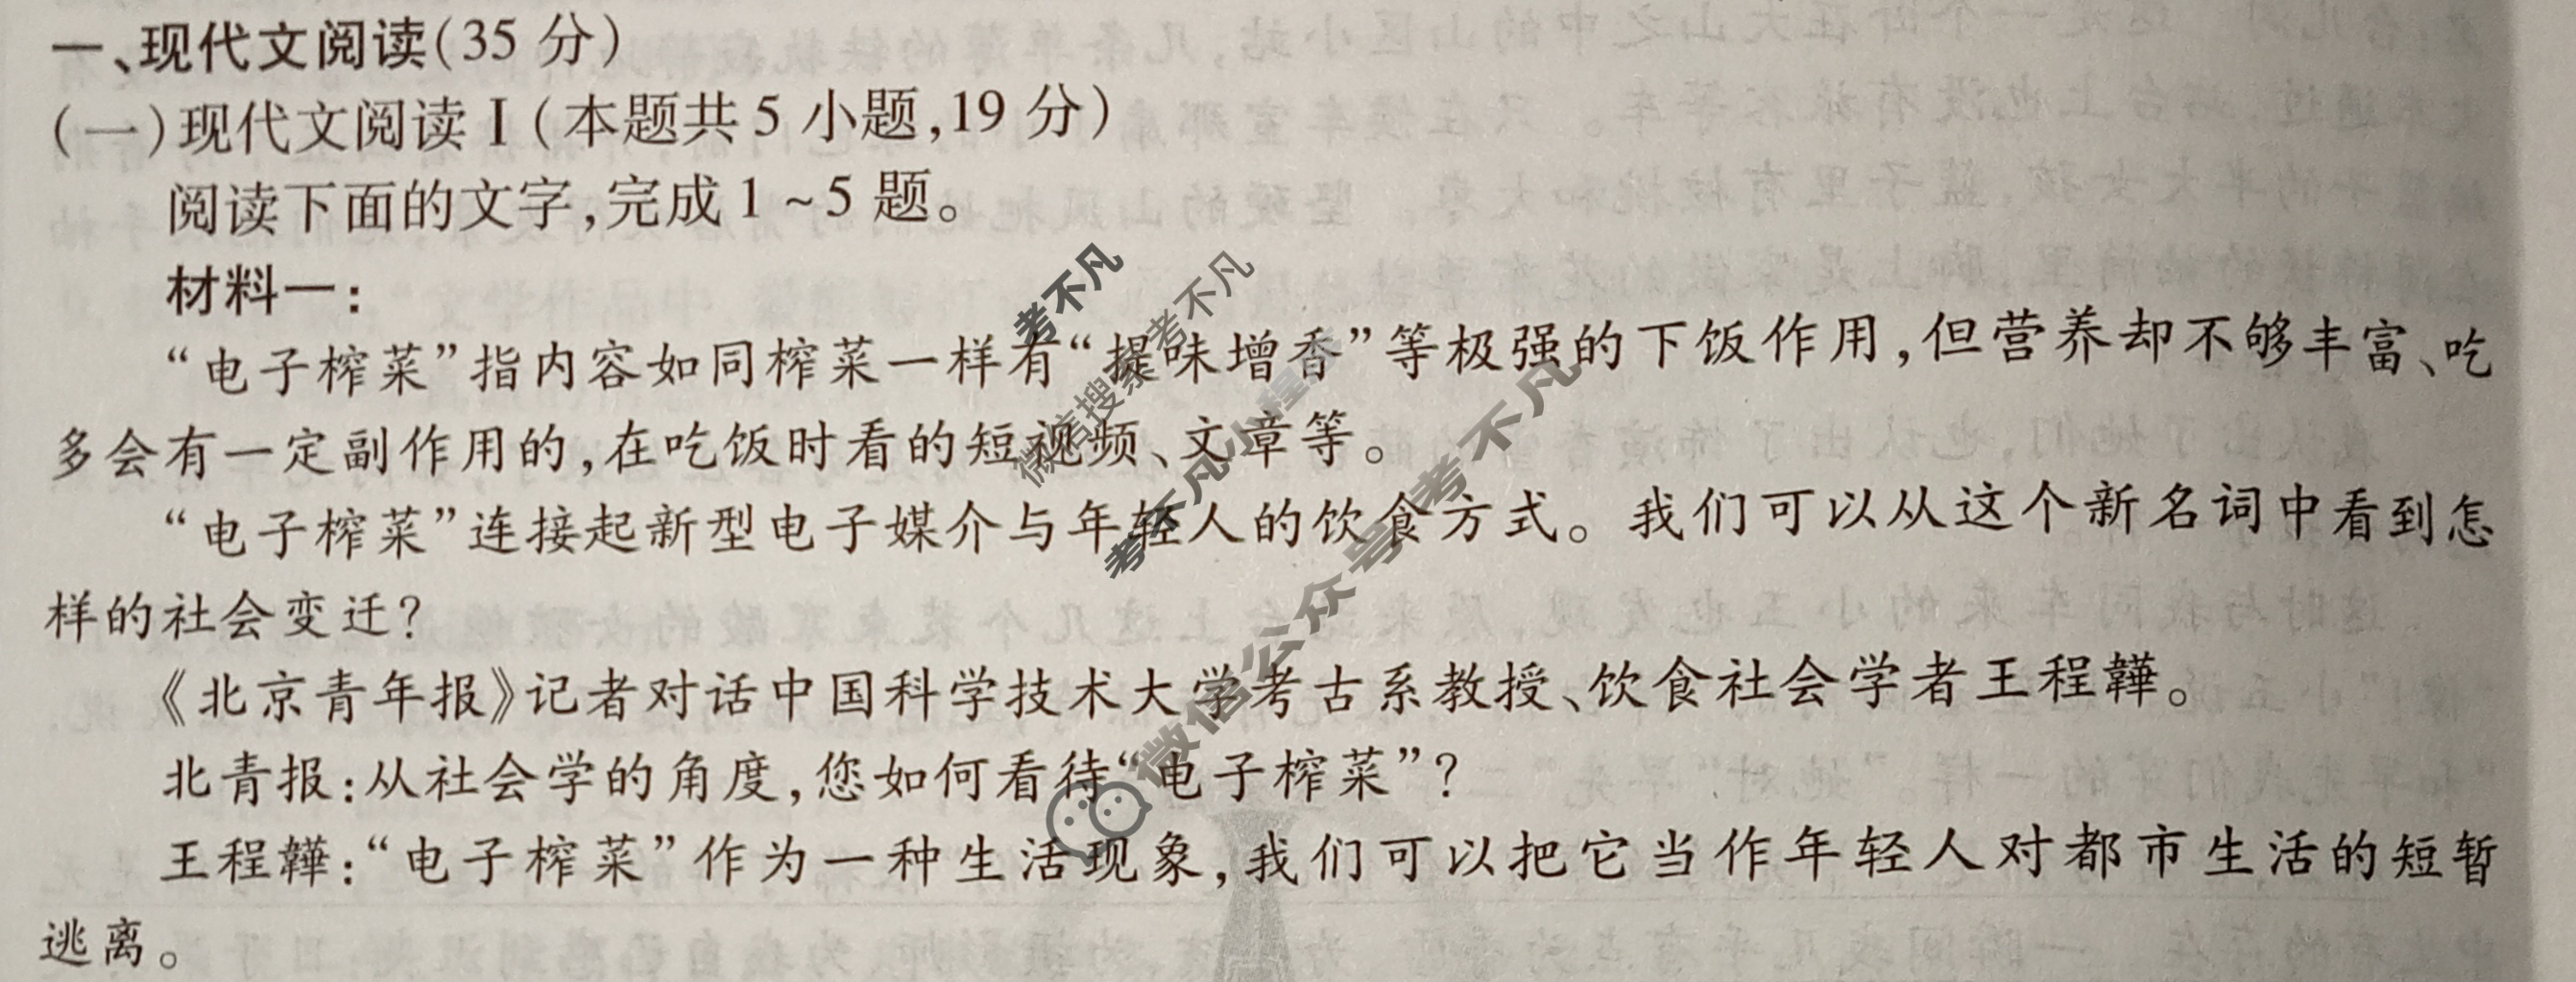 一、现代文阅读(35 分)
(一)现代文阅读Ⅰ(本题共5 小题,19 分)
阅读下面的文字,完成1~5 题。
材料一:
“电子榨菜”指内容如同榨菜一样有“提味增香”等极强的下饭作用,但营养却不够丰富、吃
多会有一定副作用的,在吃饭时看的短视频、文章等。
“电子榨菜”连接起新型电子媒介与年轻人的饮食方式。我们可以从这个新名词中看到怎
样的社会变迁?
《北京青年报》记者对话中国科学技术大学考古系教授、饮食社会学者王程韡。
北青报:从社会学的角度,您如何看待“电子榨菜”?
王程韡:“电子榨菜”作为一种生活现象,我们可以把它当作年轻人对都市生活的短暂
逃离。
考不凡
微信搜索考不凡
考不凡小程序
微信公众号考不凡